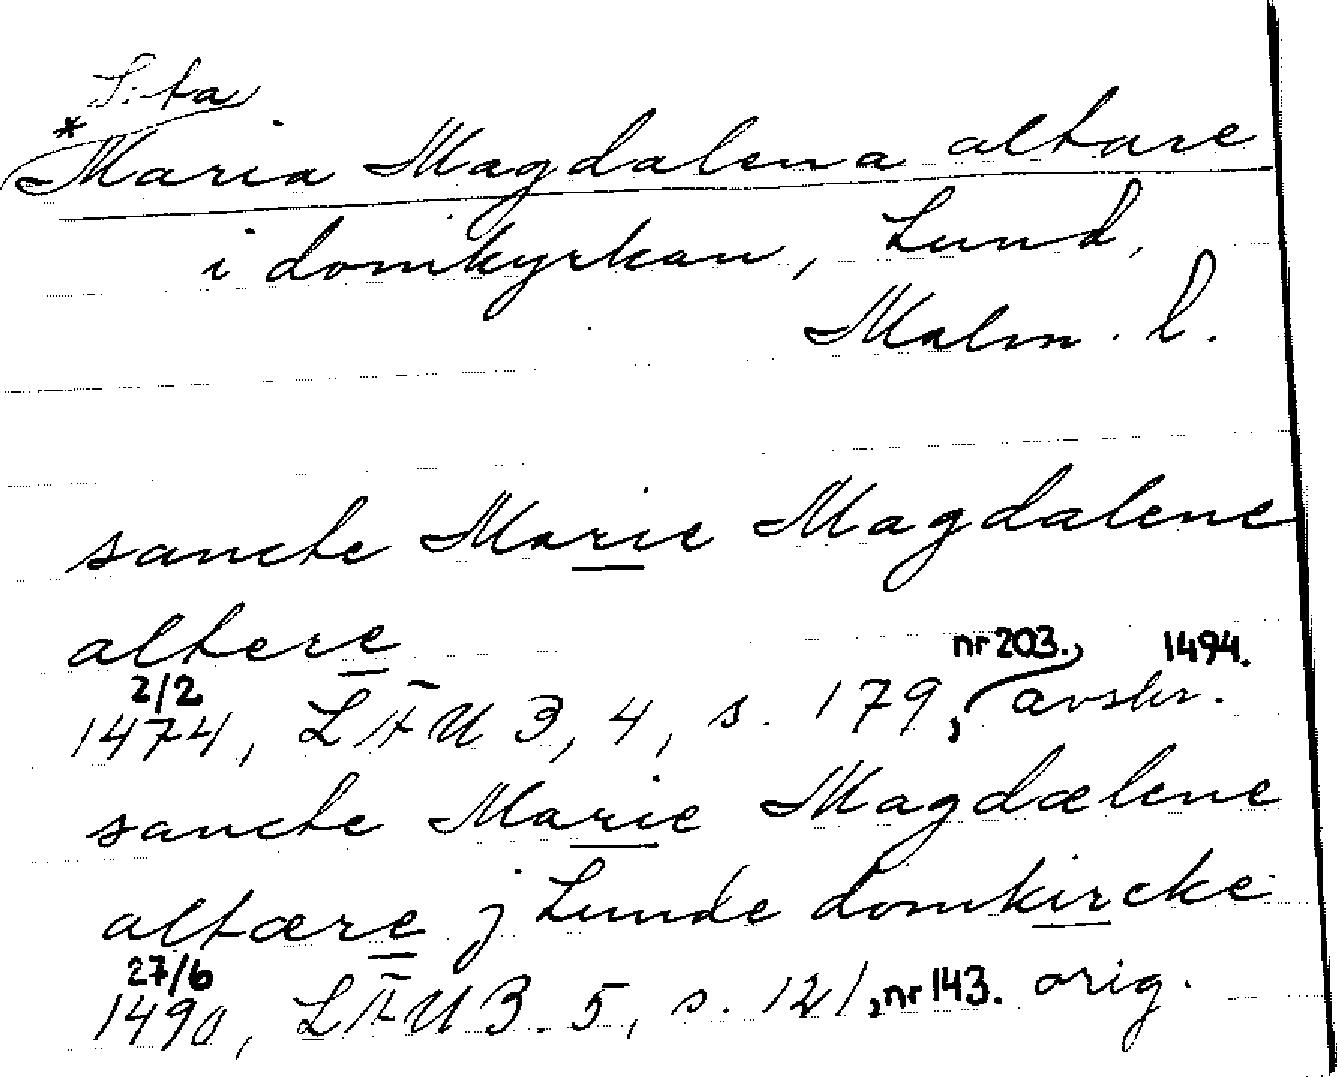 S:ta
* Maria Magdalena altare
i domkyrkan, Lund,
Malm. l.
sancte Marie Magdalene
altere
2/2 nr 203. 1494.
1474, LÄU 3, 4, s. 179, avskr.
sancte Marie Magdælene
altære j Lunde domkircke
27/6
1490, LÄU 3. 5, s. 121, nr 143. orig.